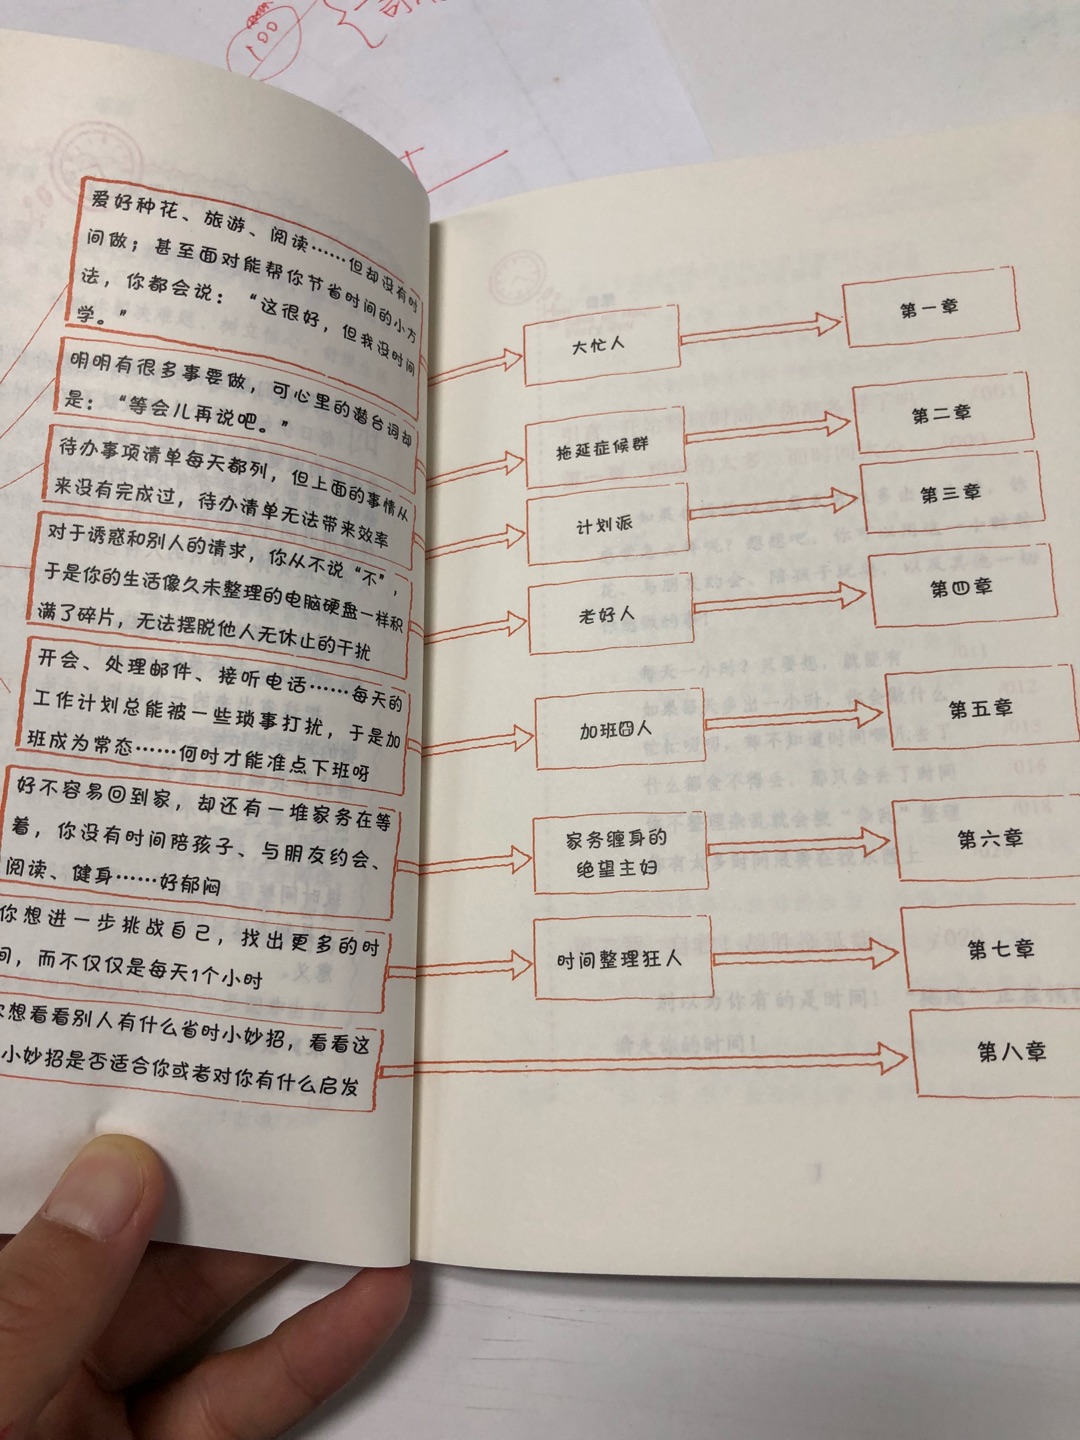 100
爱好种花、旅游、阅读……但却没有时
间做；甚至面对能帮你节省时间的小方
法，你都会说：“这很好，但我没时间
学。”
大忙人
第一章
明明有很多事要做，可心里的潜台词却
是：“等会儿再说吧。”
拖延症候群
第二章
待办事项清单每天都列，但上面的事情从
来没有完成过，待办清单无法带来效率
计划派
第三章
对于诱惑和别人的请求，你从不说“不”，
于是你的生活像久未整理的电脑硬盘一样积
满了碎片，无法摆脱他人无休止的干扰
老好人
第四章
开会、处理邮件、接听电话……每天的
工作计划总能被一些琐事打扰，于是加
班成为常态……何时才能准点下班呀
加班囧人
第五章
好不容易回到家，却还有一堆家务在等
着，你没有时间陪孩子、与朋友约会、
阅读、健身……好郁闷
家务缠身的
绝望主妇
第六章
你想进一步挑战自己，找出更多的时
间，而不仅仅是每天1个小时
时间整理狂人
第七章
想看看别人有什么省时小妙招，看看这
小妙招是否适合你或者对你有什么启发
第八章